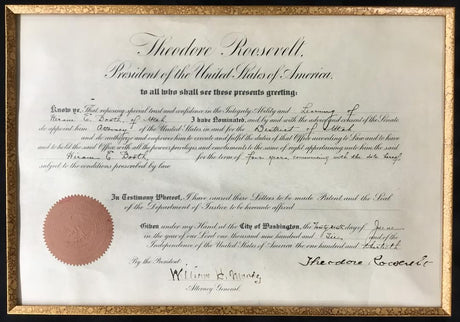 Theodore Roosevelt,
President of the United States of America.
to all who shall see these presents greeting:
Know ye, That reposing special trust and confidence in the Integrity, Ability and Learning of
Hiram E. Booth, of Utah I have Nominated, and by and with the advice and consent of the Senate
do appoint him Attorney of the United States in and for the District of Utah
and do authorize and empower him to execute and fulfil the duties of that Office according to Law and to have
and to hold the said Office with all the powers, privileges and emoluments to the same of right appertaining unto him the said
Hiram E. Booth for the term of four years commencing with the date hereof
subject to the conditions prescribed by law.
In Testimony Whereof, I have caused these Letters to be made Patent and the Seal
of the Department of Justice to be hereunto affixed.
Given under my Hand at the City of Washington, the day of June
in the year of our Lord one thousand nine hundred and and of the
Independence of the United States of America the one hundred and thirtieth
By the President: Theodore Roosevelt
William H. Moody
Attorney General.